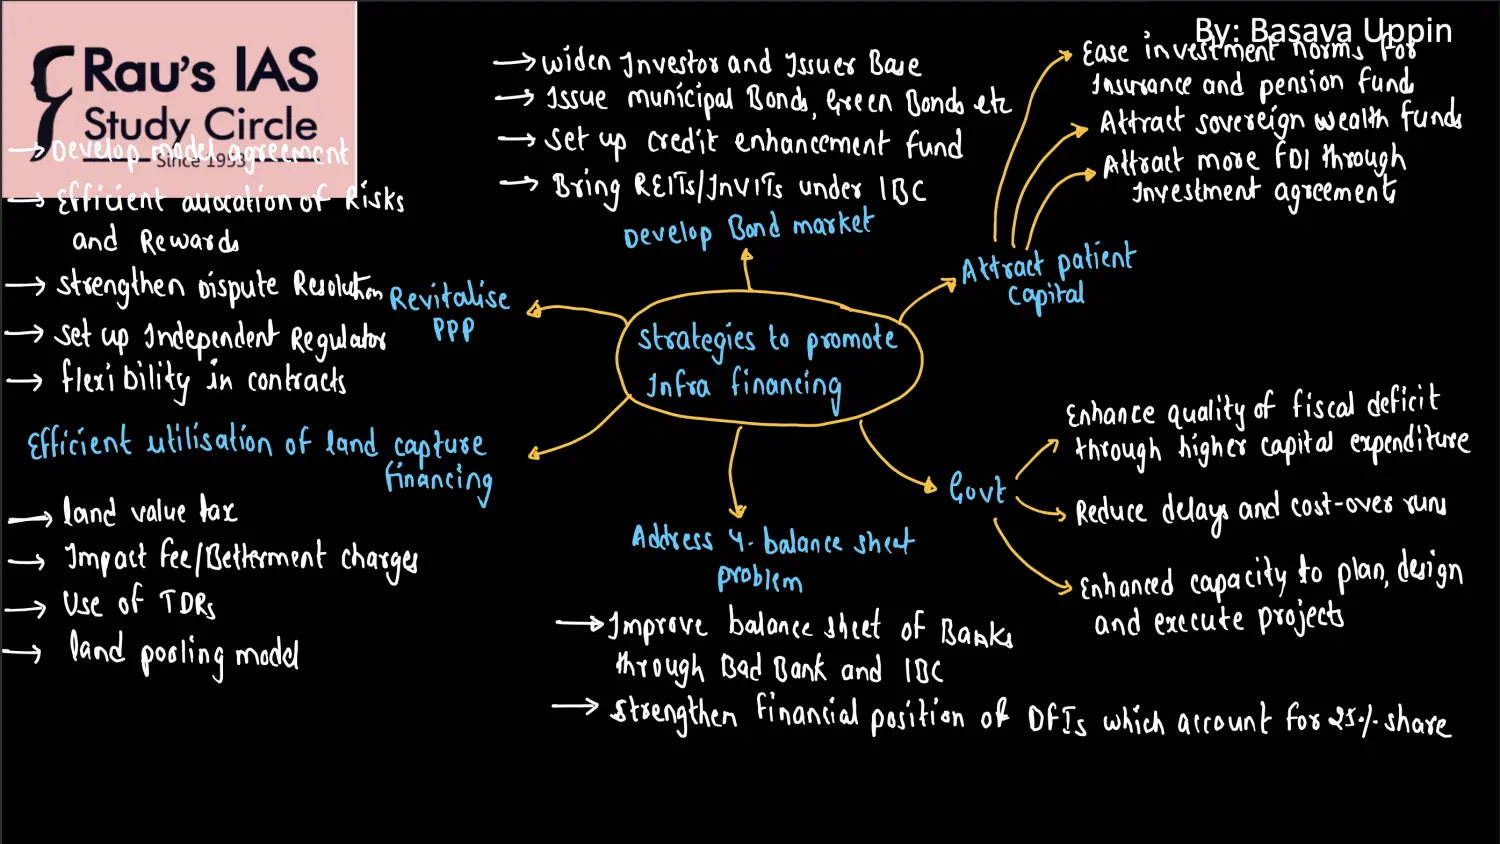 By: Basava Uppin
Rau's IAS
Study Circle
Since 1953
→ Develop model agreement
→ Efficient allocation of Risks
and Rewards
→ Strengthen Dispute Resolution
→ Set up Independent Regulator
→ flexibility in contracts
Revitalise
PPP
→ Widen Investor and Issuer Base
→ Issue municipal Bonds, Green Bonds etc
→ Set up credit enhancement fund
→ Bring REITs/InVITs under IBC
Develop Bond market
Ease investment norms for
Insurance and pension fund
Attract sovereign wealth funds
Attract more FDI through
Investment agreements
Attract patient
capital
Strategies to promote
Infra financing
Efficient utilisation of land capture
financing
→ land value tax
→ Impact fee/Betterment charges
→ Use of TDRs
→ land pooling model
Address 4-balance sheet
problem
→ Improve balance sheet of Banks
through Bad Bank and IBC
→ Strengthen financial position of DFIs which account for 25% share
Govt
Enhance quality of fiscal deficit
through higher capital expenditure
Reduce delays and cost-over runs
Enhanced capacity to plan, design
and execute projects